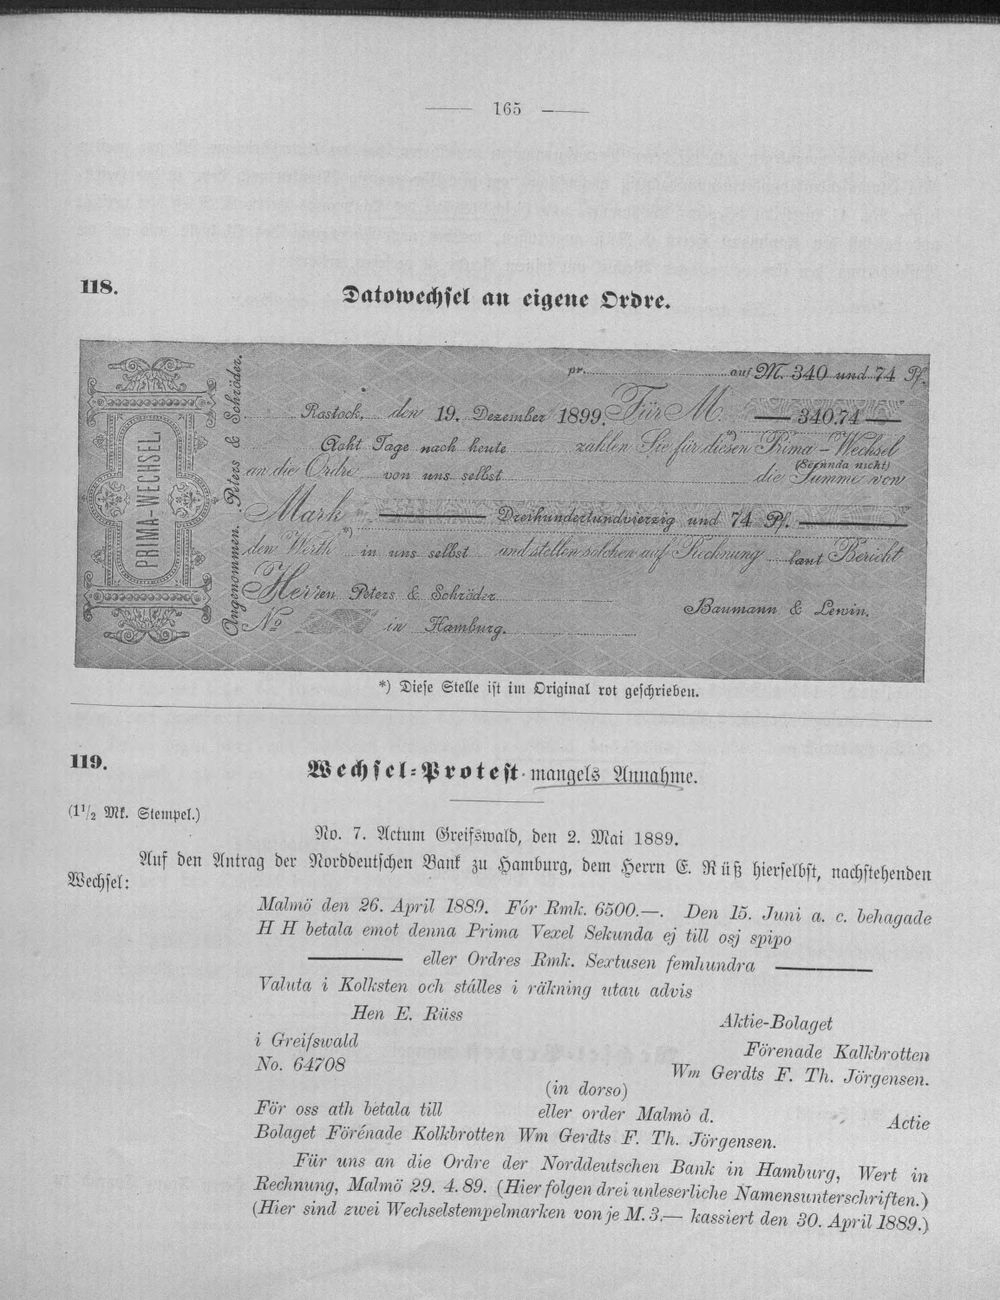 165
118.
Datowechsel an eigene Ordre.
PRIMA-WECHSEL.
Angenommen. Peters & Schröder.
pr. auf M. 340 und 74 Pf.
Rostock, den 19. Dezember 1899. Für M. 340.74
Acht Tage nach heute zahlen Sie für diesen *) Prima-Wechsel
(Secunda nicht)
an die Ordre von uns selbst die Summe von
Mark Dreihundertundvierzig und 74 Pf.
den Werth *) in uns selbst und stellen solchen auf Rechnung laut Bericht
Herren Peters & Schröder
Baumann & Lewin.
No in Hamburg.
*) Diese Stelle ist im Original rot geschrieben.
119.
Wechsel-Protest mangels Annahme.
(1 1/2 Mk. Stempel.)
No. 7. Actum Greifswald, den 2. Mai 1889.
Auf den Antrag der Norddeutschen Bank zu Hamburg, dem Herrn E. Rüß hierselbst, nachstehenden
Wechsel:
Malmö den 26. April 1889. Fór Rmk. 6500.—. Den 15. Juni a. c. behagade
H H betala emot denna Prima Vexel Sekunda ej till osj spipo
eller Ordres Rmk. Sextusen femhundra
Valuta i Kolksten och ställes i räkning utau advis
Hen E. Rüss
Aktie-Bolaget
i Greifswald
Förenade Kalkbrotten
No. 64708
Wm Gerdts F. Th. Jörgensen.
(in dorso)
För oss ath betala till eller order Malmö d. Actie
Bolaget Förénade Kolkbrotten Wm Gerdts F. Th. Jörgensen.
Für uns an die Ordre der Norddeutschen Bank in Hamburg, Wert in
Rechnung, Malmö 29. 4. 89. (Hier folgen drei unleserliche Namensunterschriften.)
(Hier sind zwei Wechselstempelmarken von je M. 3,— kassiert den 30. April 1889.)